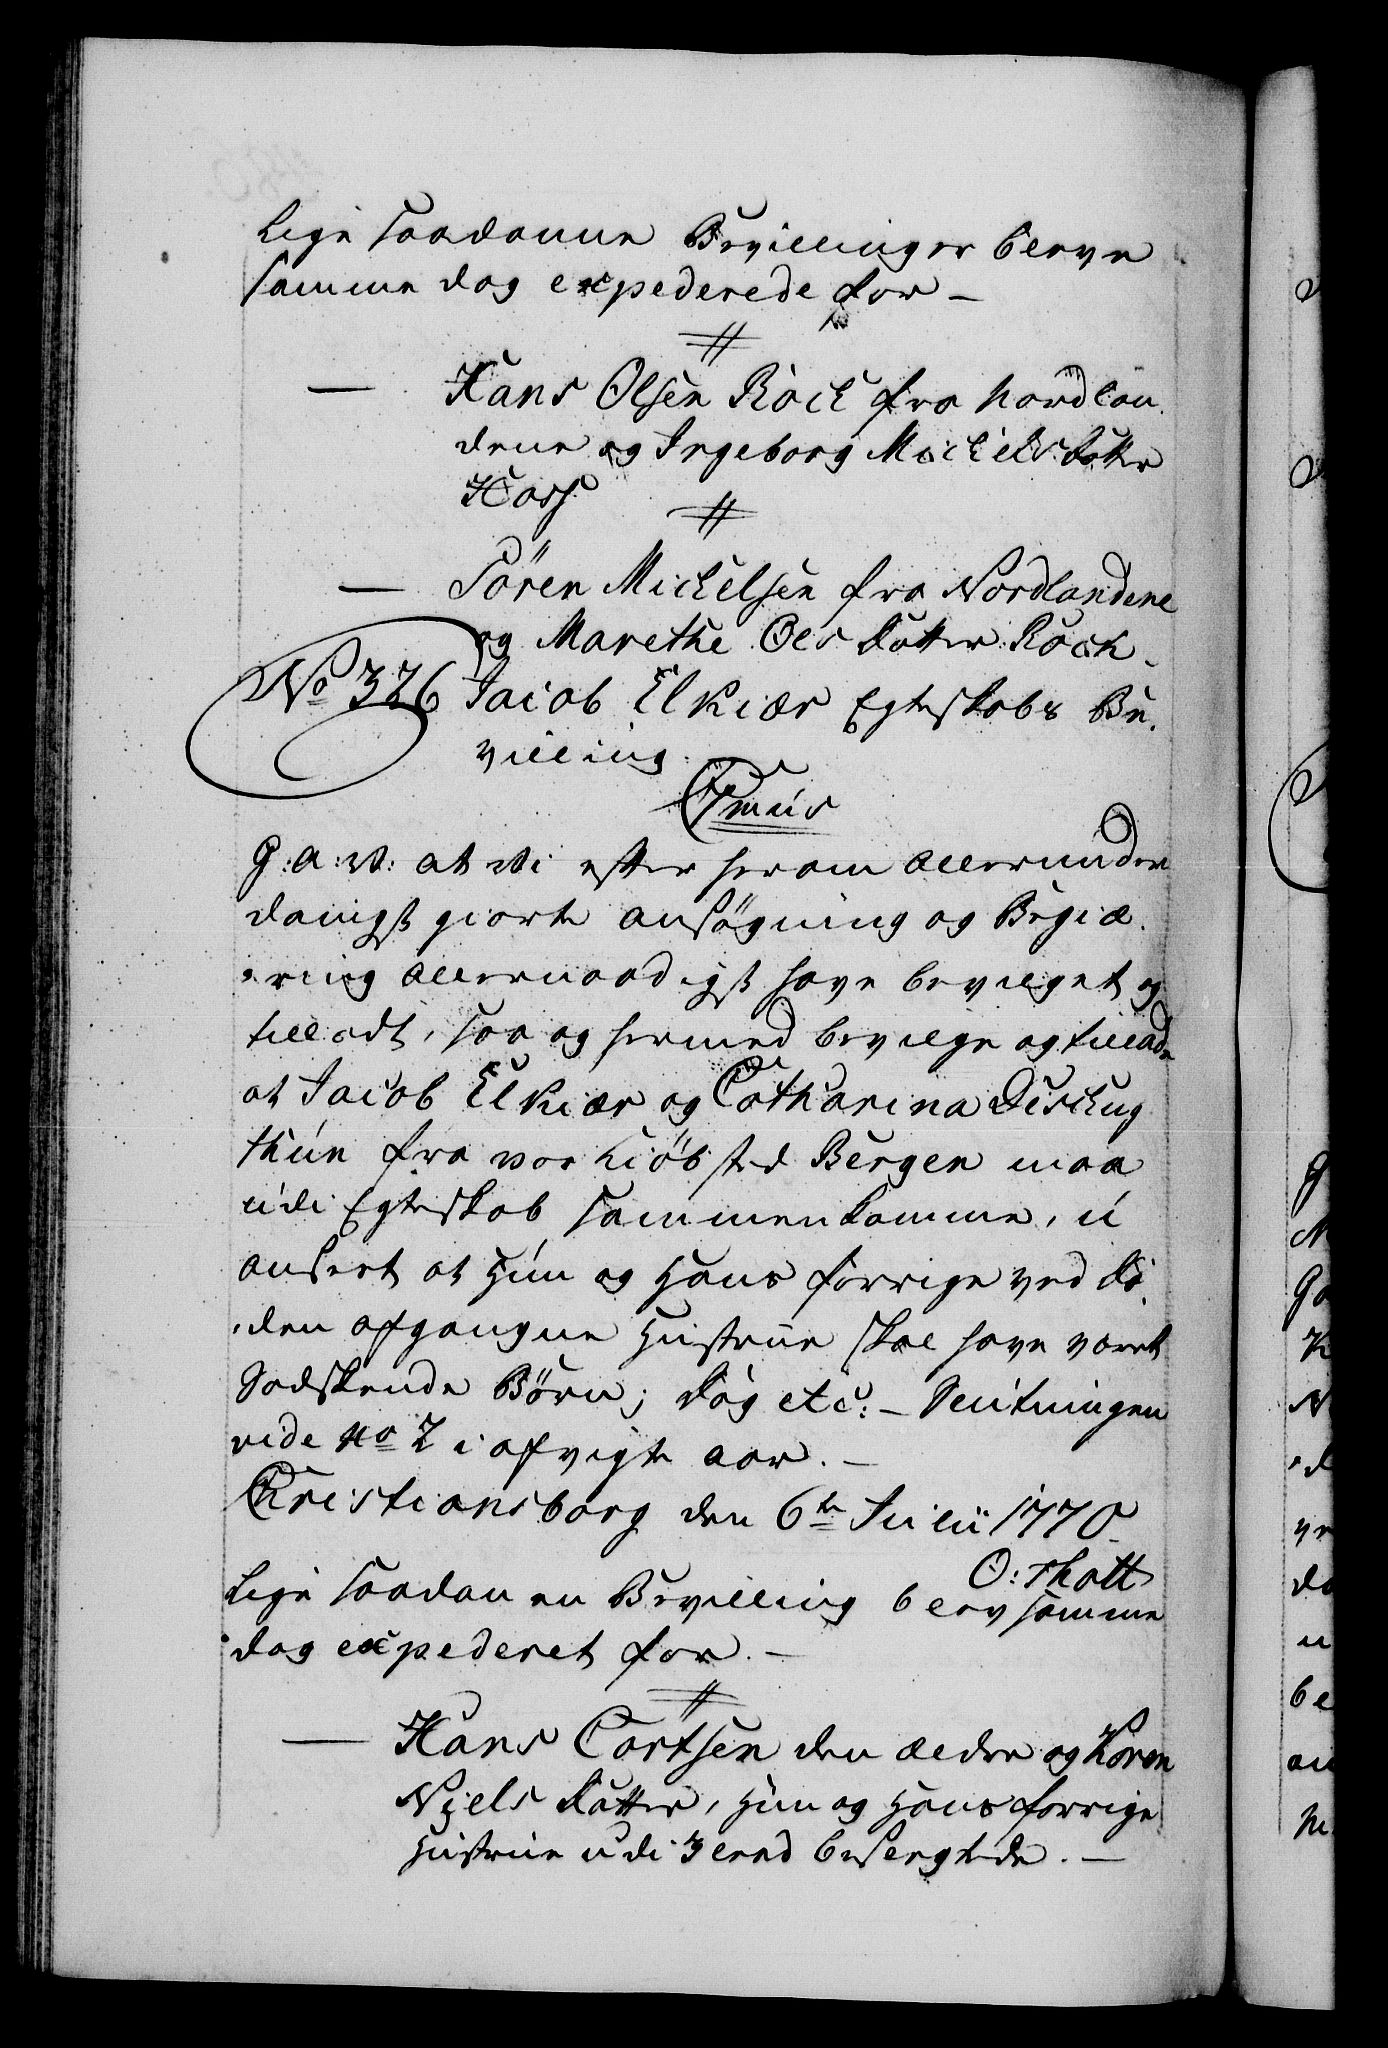 Lige saadanne Bevillinger bleve
samme dag expederede for –
Hans Olsen Röck fra Nordlan
dene og Ingeborg Mickelsdatter
Hass
Sören Mickelsen fra Nordlandene
og Marethe Olsdatter Röck.
No 326 Jacob Elkiær Egteskabs Be
villing.
Cmus
G: a: V: at Vi efter herom allerunder
danigst giorte ansøgning og Begiæ
ring allernaadigst have bevilget og
tilladt, saa og hermed bevilge og tillade
at Jacob Elkiær og Catharina
thun fra vor Kiöbsted Bergen maa
udi Egteskab sammenkomme, u
anseet at Hun og Hans forrige ved dö
den afgangne Hustrue skal have været
Södskende Börn; dog etc: – Slutningen
vide No 2 i afvigte aar. –
Christiansborg den 6te Julii 1770
O: Thott
Lige saadan en Bevilling blev samme
dag expederet for. –
Hans Cortsen den ældre og Karen
Niels datter, Hun og Hans forrige
Hustrue udi 3 leed besvergtede. –